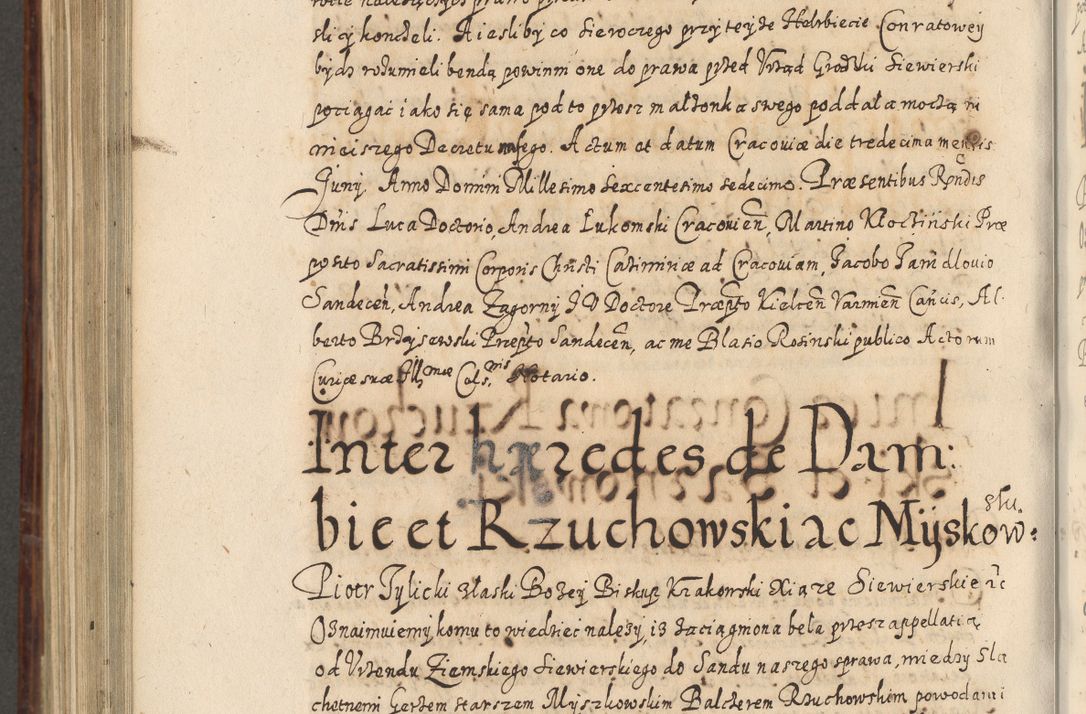 sli cÿ koncdeli. A iesliby co sieroczego przÿ teÿże Helzbiecie Conratoweÿ
bÿdz rozumieli bendą powinni one do prawa pżed Vrząd Grodzki Siewierski
pociągac iako się sama pod to pżesz małżonka swego poddała moczą ni
nieiszego Decretu nasego. Actum et datum Cracoviæ die tredecima mensis
Junÿ. Anno Domini Millesimo Sexcentesimo sedecimo. Præsentibus Rṉdis
Dṉis Luca Doctorio, Andrea Lukomski Cracovieñ, Martino Kloczinski Præ
posito Sacratissimi Corporis Christi Casimiriæ ad Cracoviam, Jacobo Janidlovio
Sandeceñ, Andrea Zagornÿ JV Doctore Præpto Kielceñ Varmeñ Cañcis, Al.
berto Brzÿsewski Præpto Sandeceñ, ac me Blasio Rosinski publico Actorum
Curiæ suæ Illmæ Celsnis Notario.
Inter hæredes de Dam:
bie et Rzuchowski ac Mÿskow=
sku.
Piotr Tÿlicki z łaski Bożeÿ Biskup Krakowski Xiąże Siewierskie rc
Oznaimuiemÿ komu to wiedziec należÿ, iż zaciągniona beła pżesz appellatią
od Vrzendu Ziemskiego Siewierskiego do Sandu naszego sprawa, miedzÿ Sla
chetnemi Gerżem starszem Mÿszkowskim Balcerem Rzuchowskim powodami